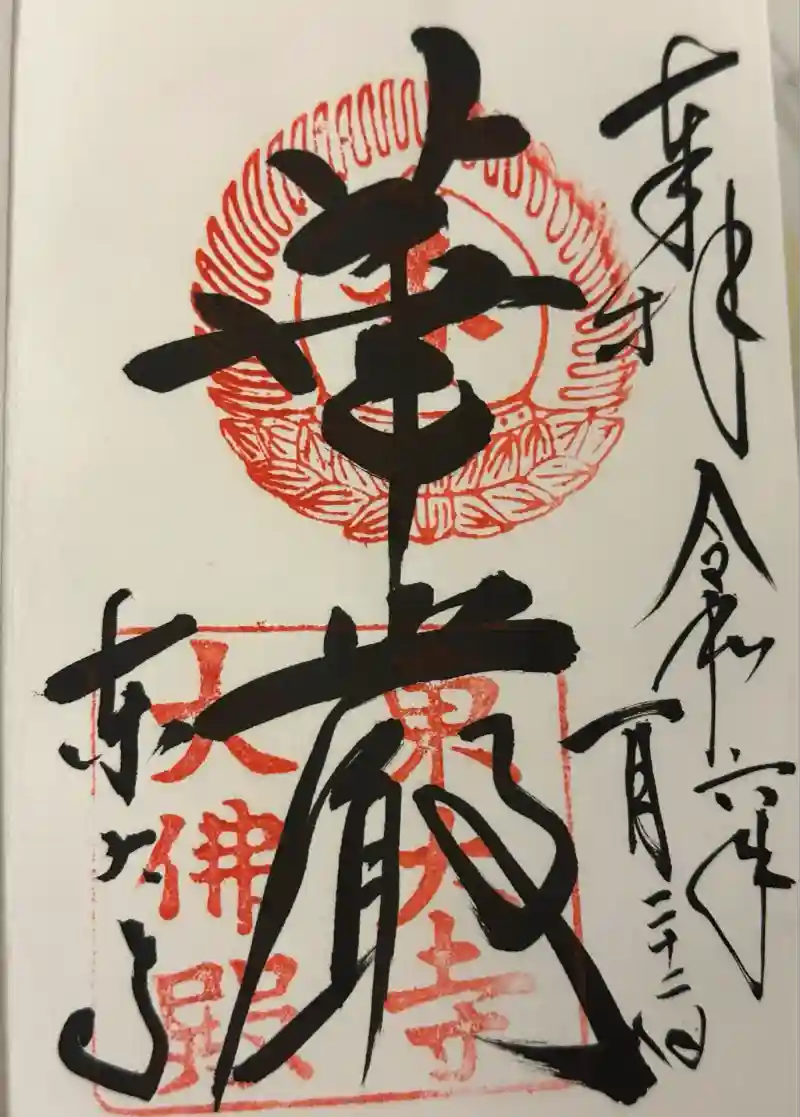 奉拝
令和六年
一月二十二日
華厳
東大寺
東大寺
大佛殿